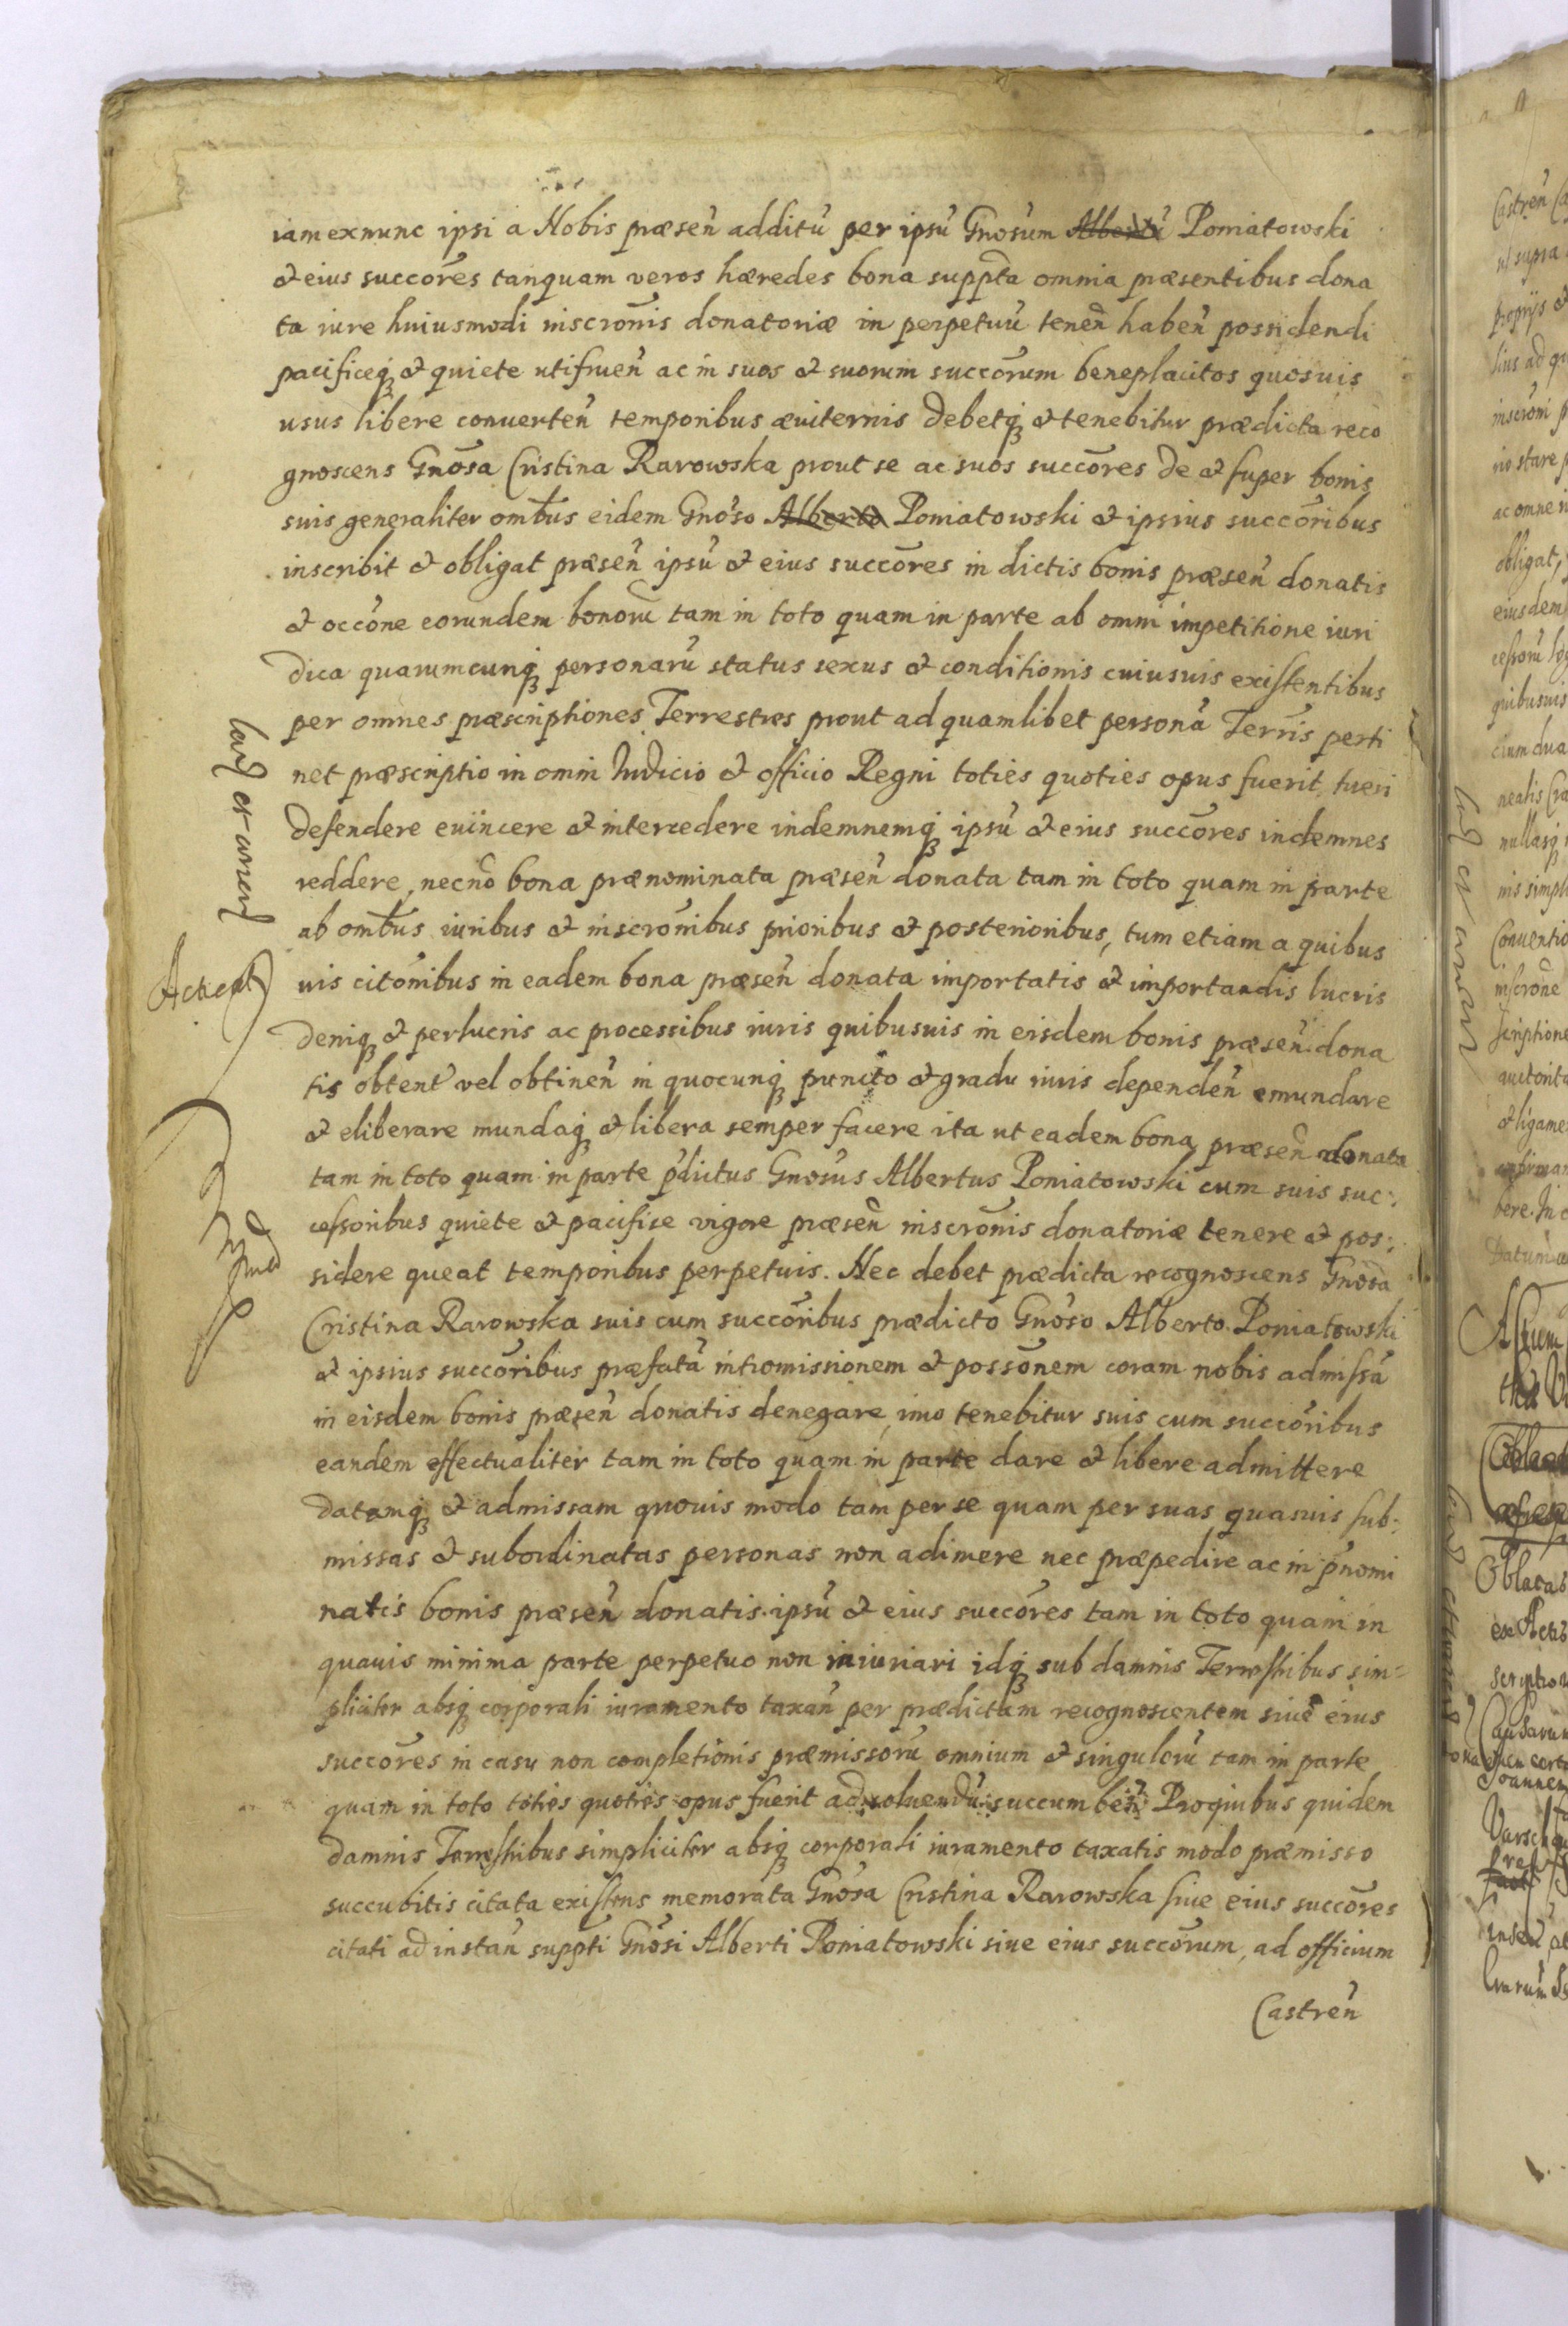 iam ex nunc ipsi a Nobis præsen̄ additū per ipsū Gnōsum Albertū Poniatowski
& eius succōres tanquam veros hæredes bona suppt̄a omnia præsentibus dona
ta iure huiusmodi inscrōnis donatoriæ in perpetuū tenen̄ haben̄ possidendi
pacificeqꝫ & quiete utifruen̄ ac in suos & suorum succōrum beneplacitos quosuis
usus libere conuerten̄ temporibus æuiternis Debetqꝫ & tenebitur prædicta reco
gnoscens Gnōsa Cristina Rarowska prout se ac suos succōres de & super bonis
suis generaliter omb̄us eidem Gnōso Alberto Poniatowski & ipsius succōribus
inscribit & obligat præsen̄ ipsū & eius succōres in dictis bonis præsen̄ donatis
& occōne eorundem bonorū tam in toto quam in parte ab omni impetitione iuri
dica quarumcunqꝫ personarū status sexus & conditionis cuiusuis existentibus
per omnes præscriptiones Terrestres prout ad quamlibet personā Terrīs perti
net præscriptio in omni Iudicio & officio Regni toties quoties opus fuerit, tueri
defendere euincere & intercedere indemnemqꝫ ipsū & eius succōres indemnes
reddere, necnō bona prænominata præsen̄ donata tam in toto quam in parte
ab omb̄us iuribus & inscrōnibus prioribus & posterioribus, tum etiam a quibus
uis citōnibus in eadem bona præsen̄ donata importatis & importandis lucris
deniqꝫ & perlucris ac processibus iuris quibusuis in eisdem bonis præsen̄ dona
tis obtent̄ vel obtinen̄ in quocunqꝫ puncto & gradu iuris dependen̄ emundare
& eliberare mundaqꝫ & libera semper facere ita ut eadem bona præsen̄ donata
tam in toto quam in parte p̄dictus Gnōsus Albertus Poniatowski cum suis suc:
cessoribus quiete & pacifice vigore præsen̄ inscrōnis donatoriæ tenere & pos:
sidere queat temporibus perpetuis. Nec debet prædicta recognoscens Gnōsa
Cristina Rarowska suis cum succōribus prædicto Gnōso Alberto Poniatowski
& ipsius succōribus præfatā intromissionem & possōnem coram nobis admissā
in eisdem bonis præsen̄ donatis denegare, imo tenebitur suis cum succōribus
eandem effectualiter tam in toto quam in parte dare & libere admittere
datamqꝫ & admissam quouis modo tam per se quam per suas quasuis sub:
missas & subordinatas personas non adimere nec præpedire ac in p̄nomi
natis bonis præsen̄ donatis ipsū & eius succōres tam in toto quam in
quauis minima parte perpetuo non iniuriari idqꝫ sub damnis Terrestribus sim=
pliciter absqꝫ corporali iuramento taxan̄ per prædictam recognoscentem siue eius
succōres in casu non completionis præmissorū omnium & singulorū tam in parte
quam in toto toties quoties opus fuerit ad soluendū succumben̄ Pro quibus quidem
damnis Terrestribus simpliciter absqꝫ corporali iuramento taxatis modo præmisso
succubitis citata existens memorata Gnōsa Cristina Rarowska siue eius succōres
citati ad instan̄ suppt̄i Gnōsi Alberti Poniatowski siue eius succōrum, ad officium
Castren̄